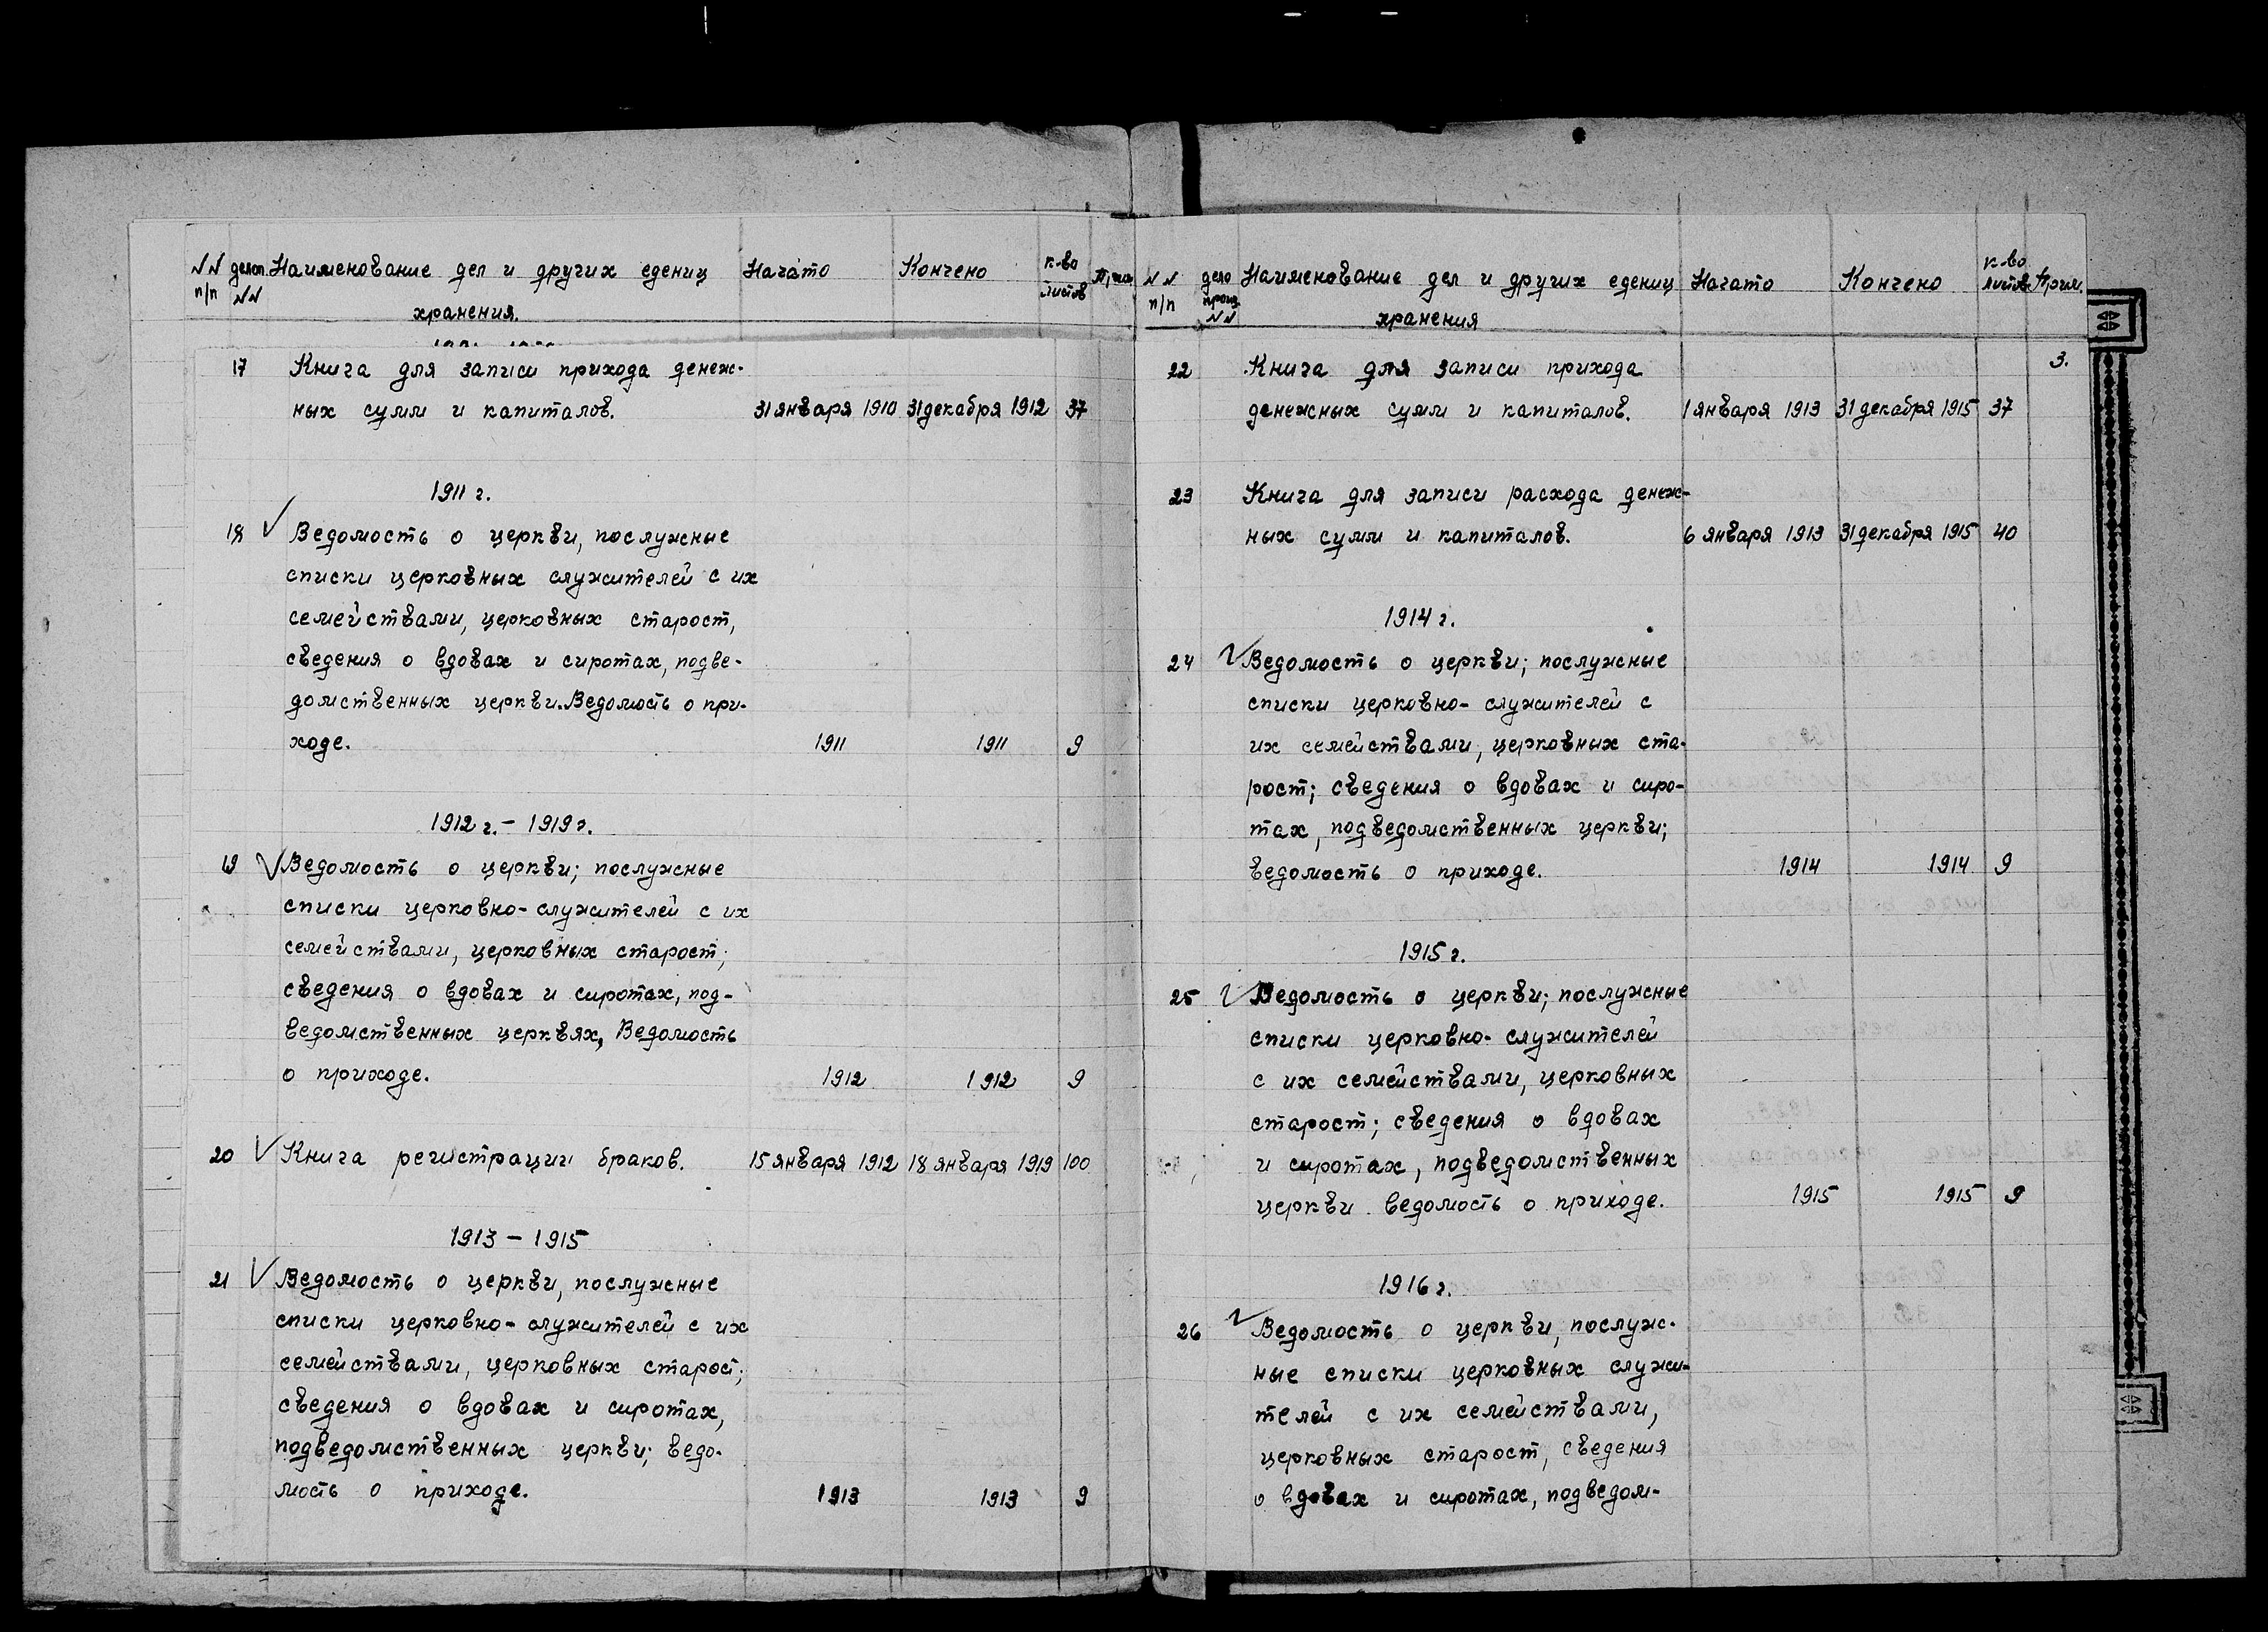 NN делоп. Наименование дел и других едениц Начато Кончено к-во
п/п NN хранения. листов
17 Книга для записи прихода денеж-
ных сумм и капиталов. 31 января 1910 31 декабря 1912 37
1911 г.
18 Ведомость о церкви, послужные
списки церковных служителей с их
семействами, церковных старост,
сведения о вдовах и сиротах, подве-
домственных церкви. Ведомость о при-
ходе. 1911 1911 9
1912 г. - 1919 г.
19 Ведомость о церкви; послужные
списки церковно-служителей с их
семействами, церковных старост;
сведения о вдовах и сиротах, под-
ведомственных церквях, Ведомость
о приходе. 1912 1912 9
20 Книга регистрации браков. 15 января 1912 18 января 1919 100
1913 - 1915
21 Ведомость о церкви, послужные
списки церковно-служителей с их
семействами, церковных старост;
сведения о вдовах и сиротах,
подведомственных церкви; ведо-
мость о приходе. 1913 1913 9
NN дело Наименование дел и других едениц Начато Кончено к-во
п/п произ. хранения листов Прим.
NN
3.
22 Книга для записи прихода
денежных сумм и капиталов. 1 января 1913 31 декабря 1915 37
23 Книга для записи расхода денеж-
ных сумм и капиталов. 6 января 1913 31 декабря 1915 40
1914 г.
24 Ведомость о церкви; послужные
списки церковно-служителей с
их семействами, церковных ста-
рост; сведения о вдовах и сиро-
тах, подведомственных церкви;
ведомость о приходе. 1914 1914 9
1915 г.
25 Ведомость о церкви; послужные
списки церковно-служителей
с их семействами, церковных
старост; сведения о вдовах
и сиротах, подведомственных
церкви ведомость о приходе. 1915 1915 9
1916 г.
26 Ведомость о церкви, послуж-
ные списки церковных служи-
телей с их семействами,
церковных старост, сведения
о вдовах и сиротах, подведом-